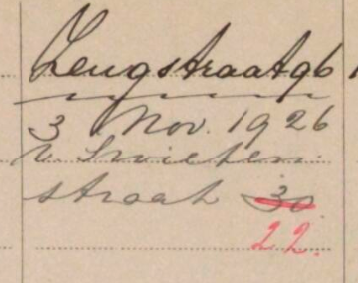 Leugstraat 96
3 Nov. 1926
v. Swieten
straat 30
22.